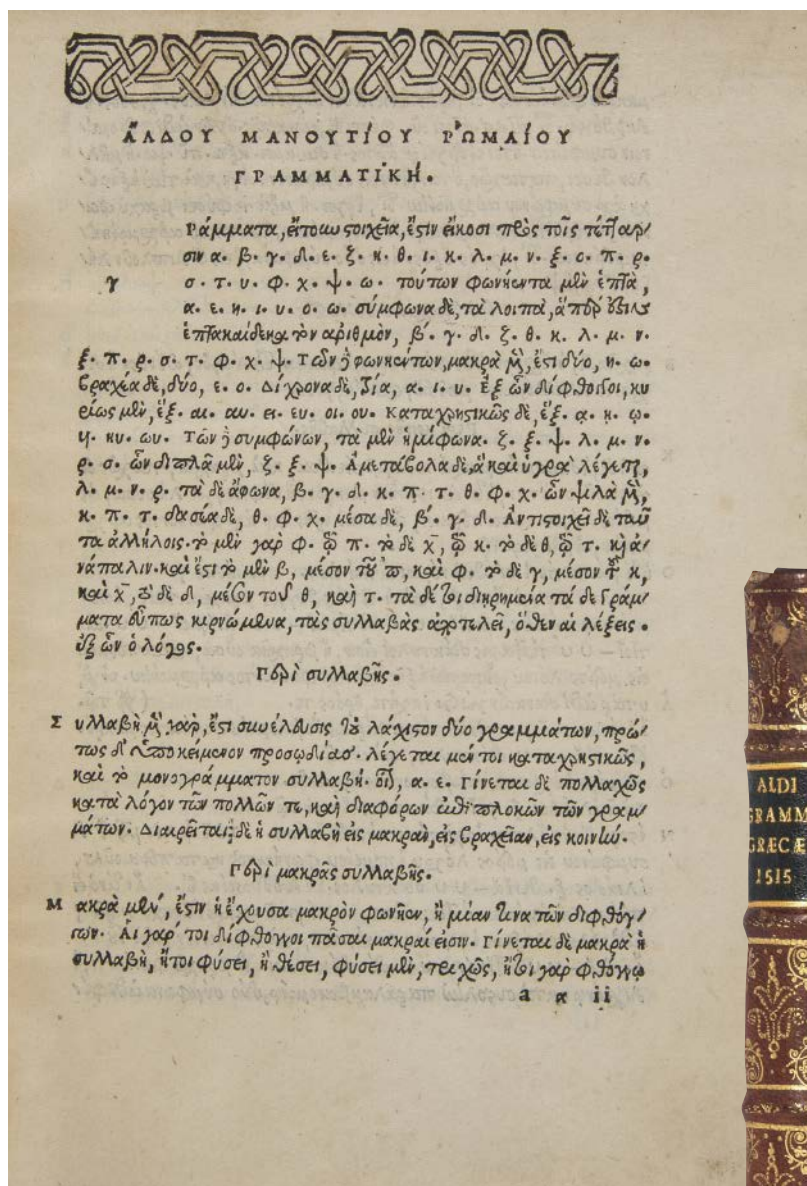 ἌΛΔΟΥ ΜΑΝΟΥΤΊΟΥ ῬΩΜΑΊΟΥ
ΓΡΑΜΜΑΤΙΚΉ.
Γράμματα, εἴτουν στοιχεῖα, ἔστιν εἴκοσι πρὸς τοῖς τέτταρ/
σιν α. β. γ. δ. ε. ζ. η. θ. ι. κ. λ. μ. ν. ξ. ο. π. ρ.
σ. τ. υ. φ. χ. ψ. ω. τούτων φωνήεντα μὲν ἑπτὰ,
α. ε. η. ι. υ. ο. ω. σύμφωνα δὲ, τὰ λοιπὰ, ἅπερ ἐστὶν
ἑπτακαίδεκα τὸν ἀριθμὸν, β. γ. δ. ζ. θ. κ. λ. μ. ν.
ξ. π. ρ. σ. τ. φ. χ. ψ. Τῶν δὲ φωνηέντων, μακρὰ μὲν, ἐστὶ δύο, η. ω.
βραχέα δὲ, δύο, ε. ο. Δίχρονα δὲ, τρία, α. ι. υ. Ἐξ ὧν δίφθογγοι, κυ
ρίως μὲν, ἕξ. αι. αυ. ει. ευ. οι. ου. Καταχρηστικῶς δὲ, ἕξ. ᾳ. ῃ. ῳ.
υι. ηυ. ωυ. Τῶν δὲ συμφώνων, τὰ μὲν ἡμίφωνα. ζ. ξ. ψ. λ. μ. ν.
ρ. σ. ὧν διπλᾶ μὲν, ζ. ξ. ψ. Ἀμετάβολα δὲ, ἃ καὶ ὑγρὰ λέγεται,
λ. μ. ν. ρ. τὰ δὲ ἄφωνα, β. γ. δ. κ. π. τ. θ. φ. χ. ὧν ψιλὰ μὲν,
κ. π. τ. δασέα δὲ, θ. φ. χ. μέσα δὲ, β. γ. δ. Ἀντιστοιχεῖ δὲ ταῦ
τα ἀλλήλοις. τὸ μὲν γὰρ φ. τῷ π. τὸ δὲ χ, τῷ κ. τὸ δὲ θ, τῷ τ. καὶ ἀ/
νάπαλιν. καὶ ἔστι τὸ μὲν β, μέσον τοῦ π, καὶ φ. τὸ δὲ γ, μέσον τοῦ κ,
καὶ χ, τὸ δὲ δ, μέσον τοῦ θ, καὶ τ. τὰ δέ τοι διῃρημένα τάδε γράμ/
ματα οὕπως κιρνώμενα, τὰς συλλαβὰς ἀποτελεῖ, ὅθεν αἱ λέξεις.
ἐξ ὧν ὁ λόγος.
Περὶ συλλαβῆς.
Συλλαβὴ μὲν γάρ, ἐστι συνέλευσις τὸ λάχιστον δύο γραμμάτων, πρώ/
τως δ' ὑποκείμενον προσῳδίας. λέγεται μέντοι καταχρηστικῶς,
καὶ τὸ μονογράμματον συλλαβή. οἷον, α. ε. Γίνεται δὲ πολλαχῶς
κατὰ λόγον τῶν πολλῶν τε, καὶ διαφόρων ἐπιπλοκῶν τῶν γραμ/
μάτων. Διαιρεῖται δὲ ἡ συλλαβὴ εἰς μακρὰν, εἰς βραχεῖαν, εἰς κοινήν.
Περὶ μακρᾶς συλλαβῆς.
Μακρὰ μὲν, ἐστιν ἡ ἔχουσα μακρὸν φωνῆεν, ἢ μίαν τινα τῶν διφθόγ/
γων. Αἱ γάρ τοι δίφθογγοι πᾶσαι μακραί εἰσιν. Γίνεται δὲ μακρὰ ἡ
συλλαβὴ, ἤτοι φύσει, ἢ θέσει, φύσει μὲν, τριχῶς, ἤτοι γὰρ φθόγγῳ
a α ii
ALDI
GRAMM
GRÆCÆ
1515